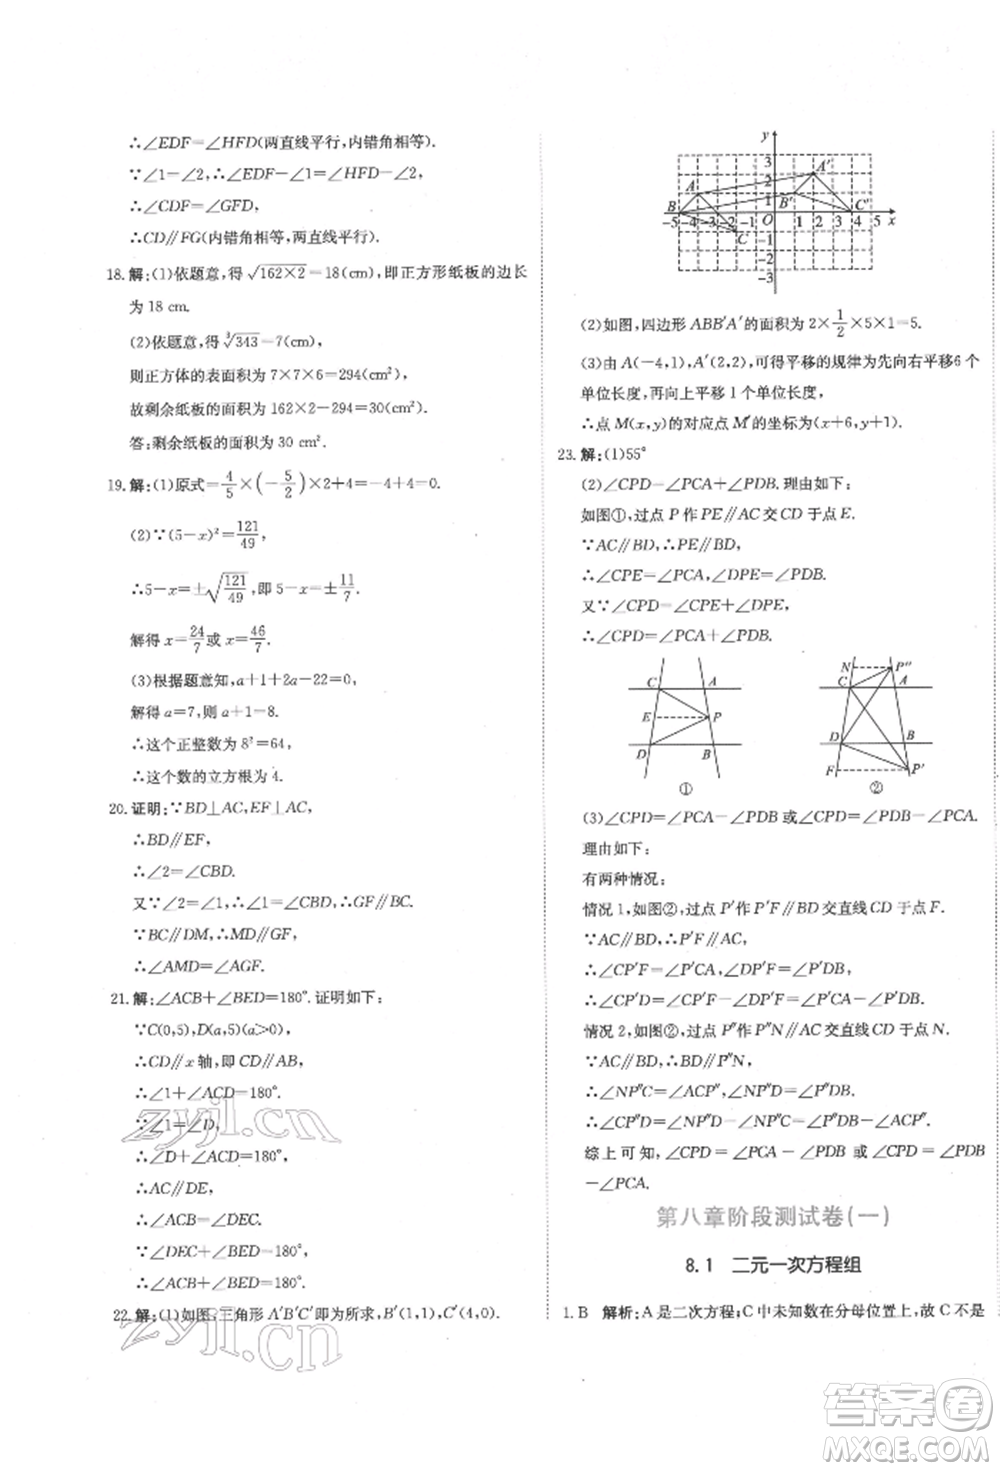 ∴∠EDF=∠HFD(两直线平行,内错角相等).
∵∠1=∠2,∴∠EDF-∠1=∠HFD-∠2,
∴∠CDF=∠GFD,
∴CD∥FG(内错角相等,两直线平行).
18.解:(1)依题意,得√162×2=18(cm),即正方形纸板的边长
为18 cm.
(2)依题意,得∛343=7(cm),
则正方体的表面积为7×7×6=294(cm²),
故剩余纸板的面积为162×2-294=30(cm²).
答:剩余纸板的面积为30 cm².
19.解:(1)原式=4/5×(-5/2)×2+4=-4+4=0.
(2)∵(5-x)²=121/49,
∴5-x=±√121/49,即5-x=±11/7.
解得x=24/7或x=46/7.
(3)根据题意知,a+1+2a-22=0,
解得a=7,则a+1=8.
∴这个正整数为8²=64,
∴这个数的立方根为4.
20.证明:∵BD⊥AC,EF⊥AC,
∴BD∥EF,
∴∠2=∠CBD.
又∵∠2=∠1,∴∠1=∠CBD,∴GF∥BC.
∵BC∥DM,∴MD∥GF,
∴∠AMD=∠AGF.
21.解:∠ACB+∠BED=180°.证明如下:
∵C(0,5),D(a,5)(a>0),
∴CD∥x轴,即CD∥AB,
∴∠1+∠ACD=180°.
∵∠1=∠D,
∴∠D+∠ACD=180°,
∴AC∥DE,
∴∠ACB=∠DEC.
∵∠DEC+∠BED=180°,
∴∠ACB+∠BED=180°.
22.解:(1)如图,三角形A′B′C′即为所求,B′(1,1),C′(4,0).
y
3
2
1
A
A′
B
B′
C′
-5 -4 -3 -2 -1 O 1 2 3 4 5 x
C
-1
-2
-3
(2)如图,四边形ABB′A′的面积为2×1/2×5×1=5.
(3)由A(-4,1),A′(2,2),可得平移的规律为先向右平移6个
单位长度,再向上平移1个单位长度,
∴点M(x,y)的对应点M′的坐标为(x+6,y+1).
23.解:(1)55°
(2)∠CPD=∠PCA+∠PDB.理由如下:
如图①,过点P作PE∥AC交CD于点E.
∵AC∥BD,∴PE∥BD,
∴∠CPE=∠PCA,∠DPE=∠PDB.
又∵∠CPD=∠CPE+∠DPE,
∴∠CPD=∠PCA+∠PDB.
C A
E P
D B
①
N P″
C A
D B
F P′
②
(3)∠CPD=∠PCA-∠PDB或∠CPD=∠PDB-∠PCA.
理由如下:
有两种情况:
情况1,如图②,过点P′作P′F∥BD交直线CD于点F.
∵AC∥BD,∴P′F∥AC,
∴∠CP′F=∠PCA,∠DP′F=∠P′DB,
∴∠CP′D=∠CP′F-∠DP′F=∠P′CA-∠P′DB.
情况2,如图②,过点P″作P″N∥AC交直线CD于点N.
∵AC∥BD,∴BD∥P″N,
∴∠NP″C=∠ACP″,∠NP″D=∠P″DB,
∴∠CP″D=∠NP″D-∠NP″C=∠P″DB-∠P″CA.
综上可知,∠CPD=∠PCA-∠PDB或∠CPD=∠PDB
-∠PCA.
第八章阶段测试卷(一)
8.1 二元一次方程组
1.B 解析:A是二次方程;C中未知数在分母位置上,故C不是
zyjl.cn
zyjl.cn
答案卷
MXQE.COM